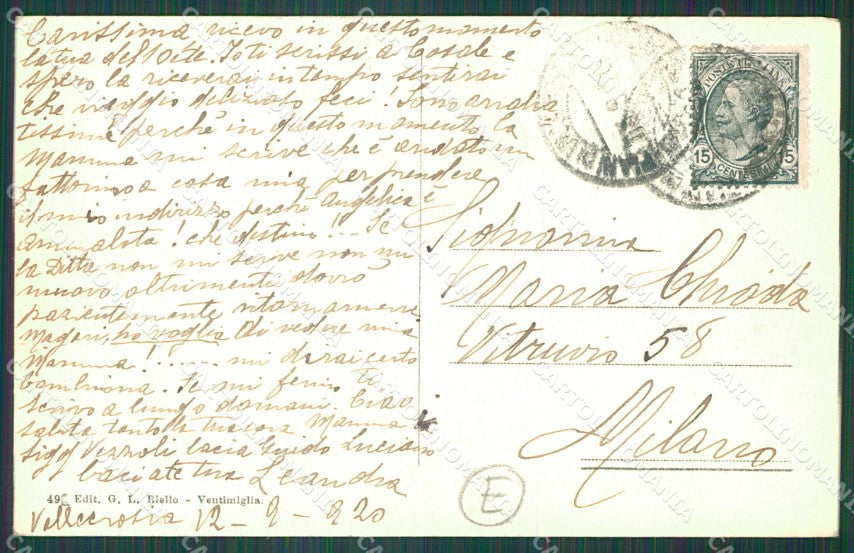 Carissima ricevo in questo momento
la tua del 10 c/te. Io ti scrissi a Casale e
spero la riceverai in tempo sentirai
che viaggio delizioso feci! Sono arrabia
tissima perchè in questo momento la
Mamma mi scrive che è andato un
fattorino a casa mia per prendere
il mio indirizzo perchè Angelica è
ammalata! che destino!... Se
la Ditta non mi scrive non mi
muovo altrimenti dovrò
pazientemente ritornarmene
Magari, ho voglia di vedere mia
Mamma!...... mi dirai certo
Se mi fermo ti
scrivo a lungo domani. Ciao
saluta tanto la tua cara Mamma
sigg Vezzoli bacia Guido Luciano
baciate tua Leandra
49. Edit. G. L. Riello - Ventimiglia.
Vallecrosia 12 - 9 - 920
POSTE ITALIANE
15 15
CENTESIMI
Signorina
Maria Chioda
Vitruvio 58
Milano
E
CARTOLINOMANIA